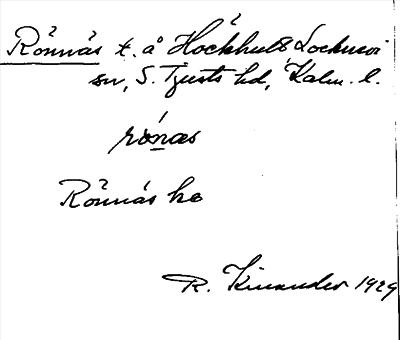 Rönnäs t. å Höckhult Locknevi
sn, S. Tjusts hd, Kalm. l.
rönas
Rönnäs ho
R. Kinander 1929